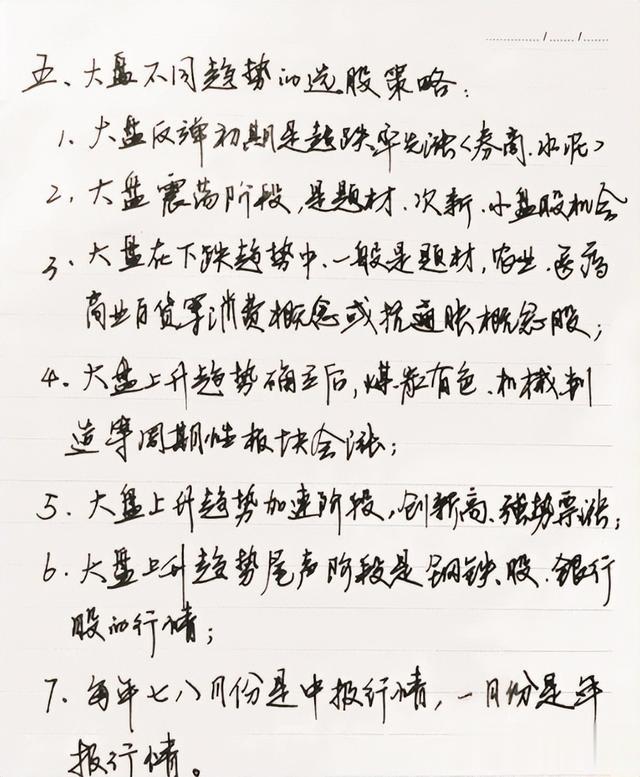 五、大盘不同趋势的选股策略：
1、大盘反弹初期是超跌率先涨<券商、水泥>
2、大盘震荡阶段，是题材、次新、小盘股机会
3、大盘在下跌趋势中、一般是题材，农业、医药
商业百货等消费概念或抗通胀概念股；
4、大盘上升趋势确立后，煤炭有色、机械制
造等周期性板块会涨；
5、大盘上升趋势加速阶段，创新高、强势票涨；
6、大盘上升趋势尾声阶段是钢铁股、银行
股的行情；
7、每年七八月份是中报行情，一月份是年
报行情。